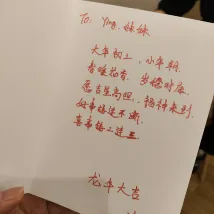 To. Ying. 妹妹
大年初一，小年朝，
春暖花香，岁稔时康。
愿吉星高照，福神来到，
好事接连不断，
喜事接二连三。
龙年大吉